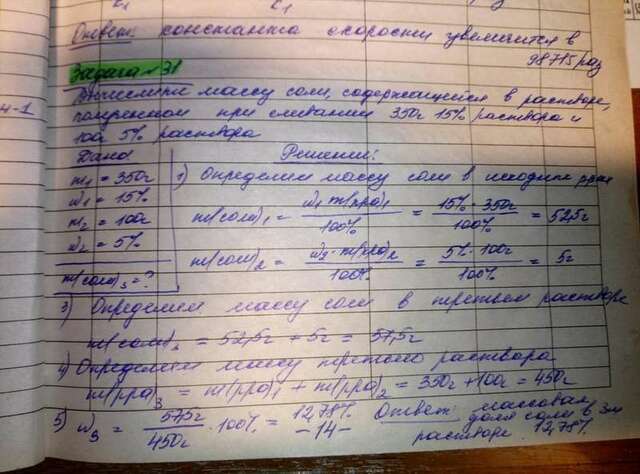 Ответ: константа скорости увеличится в
98715 раз
Задача №31
Вычислить массу соли, содержащейся в растворе,
полученном при сливании 350г 15% раствора и
100г 5% раствора
Дано
m1 = 350г
ω1 = 15%
m2 = 100г
ω2 = 5%
m(соли)3 = ?
Решение:
1) Определим массу соли в исходном р-ре
m(соли)1 = ω1·m(рра)1 / 100% = 15%·350г / 100% = 52,5г
m(соли)2 = ω2·m(рра)2 / 100% = 5%·100г / 100% = 5г
3) Определим массу соли в третьем растворе
m(соли) = 52,5г + 5г = 57,5г
4) Определим массу третьего раствора
m(рра)3 = m(рра)1 + m(рра)2 = 350г + 100г = 450г
5) ω3 = 57,5г / 450г · 100% = 12,78%
Ответ: массовая
доля соли в 3м
растворе 12,78%
-14-
4-1